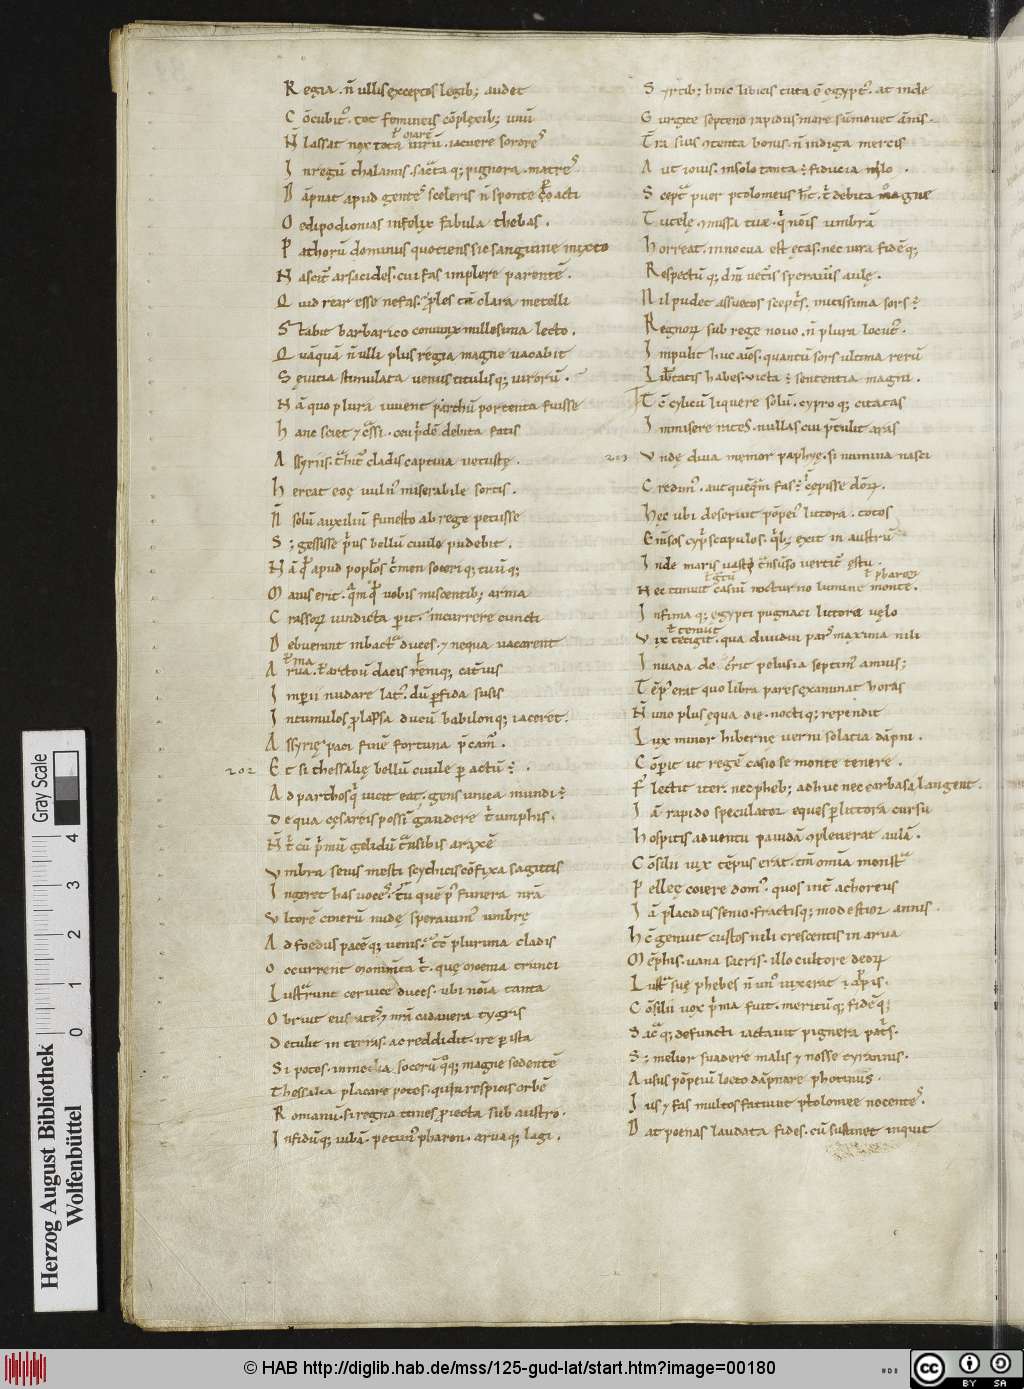 Regia. n̄ ullis exceptos legib; audet
Cōcubit᷒. tot femineis cōplexib; unū
N̄ lassat nox tota uirū. iacuere sorores
ł marē
In regum thalamis. sacͣta q; pignora. matres
Dāpnat apud gentes sceleris n̄ sponte coacti
Oedipodionias infelix fabula thebas.
Pathorū dominus quotiens sic sanguine mixto
Nascit᷒ arsacides. cui fas implere parentē.
Quid rear esse nefas. proles tā clara metelli
Stabit barbarico coniunx millesima lecto.
Quāquā n̄ ulli plus regia magne uacabit
Sęuitia stimulata uenus titulisq; uirorū.
Nā quo plura iuuent parthū portenta fuisse
hanc sciet ⁊ crassi. ceu pridē debita fatis
Assyriis. trahit᷒ cladis captiua uetustę.
hereat eoę uuln᷒ miserabile sortis.
N̄ solū auxiliū funesto ab rege petisse
S; gessisse pri᷒ bellū ciuile pudebit.
Nā quod apud poplos crimen socerique; tuūq;
Maius erit. quam quod uobis miscentib; arma
Crassoꝝ uindicta perit. incurrere cuncti
Debuerant in bactra duces. ⁊ nequa uacarent
ł ma
Arua. ł arctoū dacis renique; cateruis
Imperii nudare lat᷒. dū perfida susis
In tumulos prolapsa ducū babilonq; iaceret.
Assyrię paci finē fortuna precamur.
202 Et si thessalię bellū ciuile peractū ē.
Ad parthos qui uicit eat. gens unica mundi ē
De qua cęsareis possim gaudere triumphis.
N̄ t᷒ cū primū gelidū transibis araxē
Vmbra senis mesti scythicis cōfixa sagittis
Ingeret has uoces. tu quē post funera nrā
Vltorē cinerū nudę sperauim᷒ umbrę
Ad foedus pacēq; uenis. tc̄ plurima cladis
Occurrent monimta t᷒. quę moenia trunci
Lustrarunt ceruice duces. ubi noīa tanta
Obruit eufrates. ⁊ nrā cadauera tygris
Detulit in terras. ac reddidit. ire per ista
Si potes. in media socerū quoq; magne sedentē
Thessalia placare potes. quin respicis orbē
Romanū. si regna times proiecta sub austro.
Infidūq; iubā. petim᷒ pharon. aruaq; lagi.
Syrtib; hinc libicis tuta ē ęgypt᷒. at inde
Gurgite septeno rapidus mare sūmouet amnis.
Tr̄a suis ɔtenta bonis. n̄ indiga mercis
Aut iouis. in solo tanta ē fiducia nilo.
Sceptra puer ptolomeus hēt. t᷒ debita magne
Tutelę ɔmissa tuę. quis nōis umbrā
Horreat. innocua est ętas. nec iura fidēq;
Respectūq; dm̄ ueteris speraueris aulę.
Nil pudet assuetos sceptris. mitissima sors ē
Regnoꝝ sub rege nouo. n̄ plura locut᷒.
Impulit huc aīos. quantū sors ultima rerū
Libertatis habes. uicta ē sententia magni.
Tc̄ cylicū liquere solū. cypro q; citatas
Immisere rates. nullas cui pretulit aras
203 Vndę diua memor paphię. si numina nasci
Credim᷒. aut quēquā fas ē cępisse doꝝ.
hęc ubi deseruit pōpei᷒ littora. totos
Emēsos cypri scopulos. quib; exit in austrū
Inde maris uasto transuso uertit᷒ ęstu.
ł gtū ł pharon
Nec tenuit casiū nocturno lumine monte.
Infima q; ęgypti pugnaci littora uęlo
ł tenuit
Vix tetigit. qua diuidui pars maxima nili
In uada decurrit pelusia septim᷒ amnis;
Tēp᷒ erat quo libra pares examinat horas
N̄ uno plus ęqua die. noctiq; rependit
Lux minor hibernę uerni solatia dāpni.
Cōperit ut regē casio se monte tenere.
Flectit iter. nec pheb; adhuc nec carbasa langent.
Iā rapido speculator eques per littora cursu
hospitis aduentu pauidā ɔpleuerat aulā.
Cōsilii uix tēpus erat. tm̄ omia monstra
Pelleę coiere dom᷒. quos int̄ achoreus
Iā placidus senio. fractisq; modestior annis.
Hc̄ genuit custos nili crescentis in arua
Mēphis. uana sacris. illo cultore deoꝝ
Lustra suę phebes n̄ un᷒ uixerat apis.
Cōsilii uox prima fuit. meritūq; fidēq;
Sacraq; defuncti iactauit pignera patris.
S; melior suadere malis ⁊ nosse tyrannis.
Ausus pōpeiū lęto dāpnare photinus.
Ius ⁊ fas multos faciunt ptolomee nocentes.
Dat poenas laudata fides. cū sustinet inquit
Herzog August Bibliothek
Wolfenbüttel
Gray Scale
0 1 2 3 4
© HAB http://diglib.hab.de/mss/125-gud-lat/start.htm?image=00180
cc BY SA